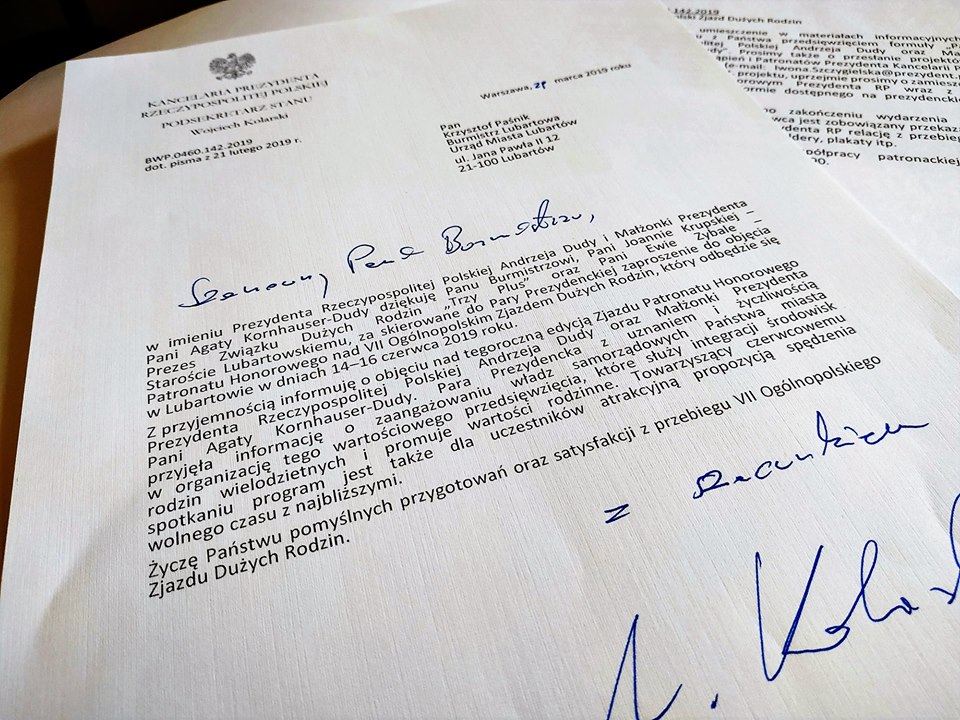 KANCELARIA PREZYDENTA
RZECZYPOSPOLITEJ POLSKIEJ
PODSEKRETARZ STANU
Wojciech Kolarski
BWP.0460.142.2019
dot. pisma z 21 lutego 2019 r.
Warszawa, 29 marca 2019 roku
Pan
Krzysztof Paśnik
Burmistrz Lubartowa
Urząd Miasta Lubartów
ul. Jana Pawła II 12
21-100 Lubartów
Szanowny Panie Burmistrzu,
w imieniu Prezydenta Rzeczypospolitej Polskiej Andrzeja Dudy i Małżonki Prezydenta
Pani Agaty Kornhauser-Dudy dziękuję Panu Burmistrzowi, Pani Joannie Krupskiej –
Prezes Związku Dużych Rodzin „Trzy Plus” oraz Pani Ewie Zybale –
Staroście Lubartowskiemu, za skierowane do Pary Prezydenckiej zaproszenie do objęcia
Patronatu Honorowego nad VII Ogólnopolskim Zjazdem Dużych Rodzin, który odbędzie się
w Lubartowie w dniach 14–16 czerwca 2019 roku.
Z przyjemnością informuję o objęciu nad tegoroczną edycją Zjazdu Patronatu Honorowego
Prezydenta Rzeczypospolitej Polskiej Andrzeja Dudy oraz Małżonki Prezydenta
Pani Agaty Kornhauser-Dudy. Para Prezydencka z uznaniem i życzliwością
przyjęła informację o zaangażowaniu władz samorządowych Państwa miasta
w organizację tego wartościowego przedsięwzięcia, które służy integracji środowisk
rodzin wielodzietnych i promuje wartości rodzinne. Towarzyszący czerwcowemu
spotkaniu program jest także dla uczestników atrakcyjną propozycją spędzenia
wolnego czasu z najbliższymi.
Życzę Państwu pomyślnych przygotowań oraz satysfakcji z przebiegu VII Ogólnopolskiego
Zjazdu Dużych Rodzin.
z szacunkiem
142.2019
Zjazd Dużych Rodzin
umieszczenie w materiałach informacyjnych
z Państwa przedsięwzięciem formuły
Polskiej Andrzeja Dudy oraz
Prosimy także o przesłanie projektów
i Patronatów Prezydenta Kancelarii
(e-mail: Iwona.Szczygielska@prezydent.
projektu, uprzejmie prosimy o
Prezydenta RP wraz z
dostępnego na
zakończeniu wydarzenia
jest zobowiązany
RP relację z
plakaty itp.
patronackiej